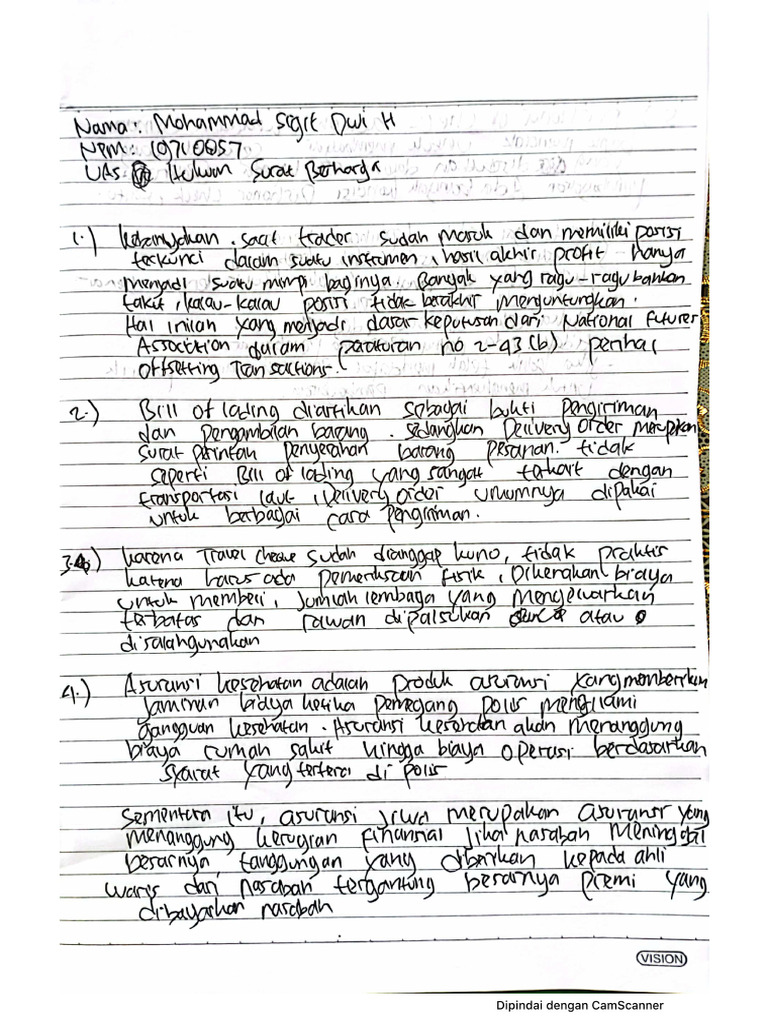 Nama : Mohammad Sigit Dwi H
NPM : 10710057
UAS Hukum Surat Berharga
1.) kebanyakan saat trader sudah masuk dan memiliki posisi
terkunci dalam suatu instrumen, hasil akhir profit hanya
menjadi suatu mimpi baginya. Banyak yang ragu-ragu bahkan
takut, kalau-kalau posisi tidak berakhir menguntungkan.
Hal inilah yang menjadi dasar keputusan dari National Futures
Association dalam peraturan no 2-43 (b) perihal
Offsetting Transactions.
2.) Bill of lading diartikan sebagai bukti pengiriman
dan pengambilan barang. sedangkan Delivery Order merupakan
surat perintah penyerahan barang pesanan. tidak
seperti Bill of lading yang sangat terkait dengan
transportasi laut, Delivery Order umumnya dipakai
untuk berbagai cara pengiriman.
3.) karena Travel cheque sudah dianggap kuno, tidak praktis
karena harus ada pemeriksaan fisik, Dikenakan biaya
untuk membeli, Jumlah lembaga yang mengeluarkan
terbatas dan rawan dipalsukan atau
disalahgunakan
4.) Asuransi kesehatan adalah produk asuransi yang memberikan
jaminan biaya ketika pemegang polis mengalami
gangguan kesehatan. Asuransi kesehatan akan menanggung
biaya rumah sakit hingga biaya operasi berdasarkan
syarat yang tertera di polis
Sementara itu, asuransi jiwa merupakan asuransi yang
menanggung kerugian finansial jika nasabah meninggal
besarnya tanggungan yang diberikan kepada ahli
waris dari nasabah tergantung besarnya premi yang
dibayarkan nasabah
VISION
Dipindai dengan CamScanner